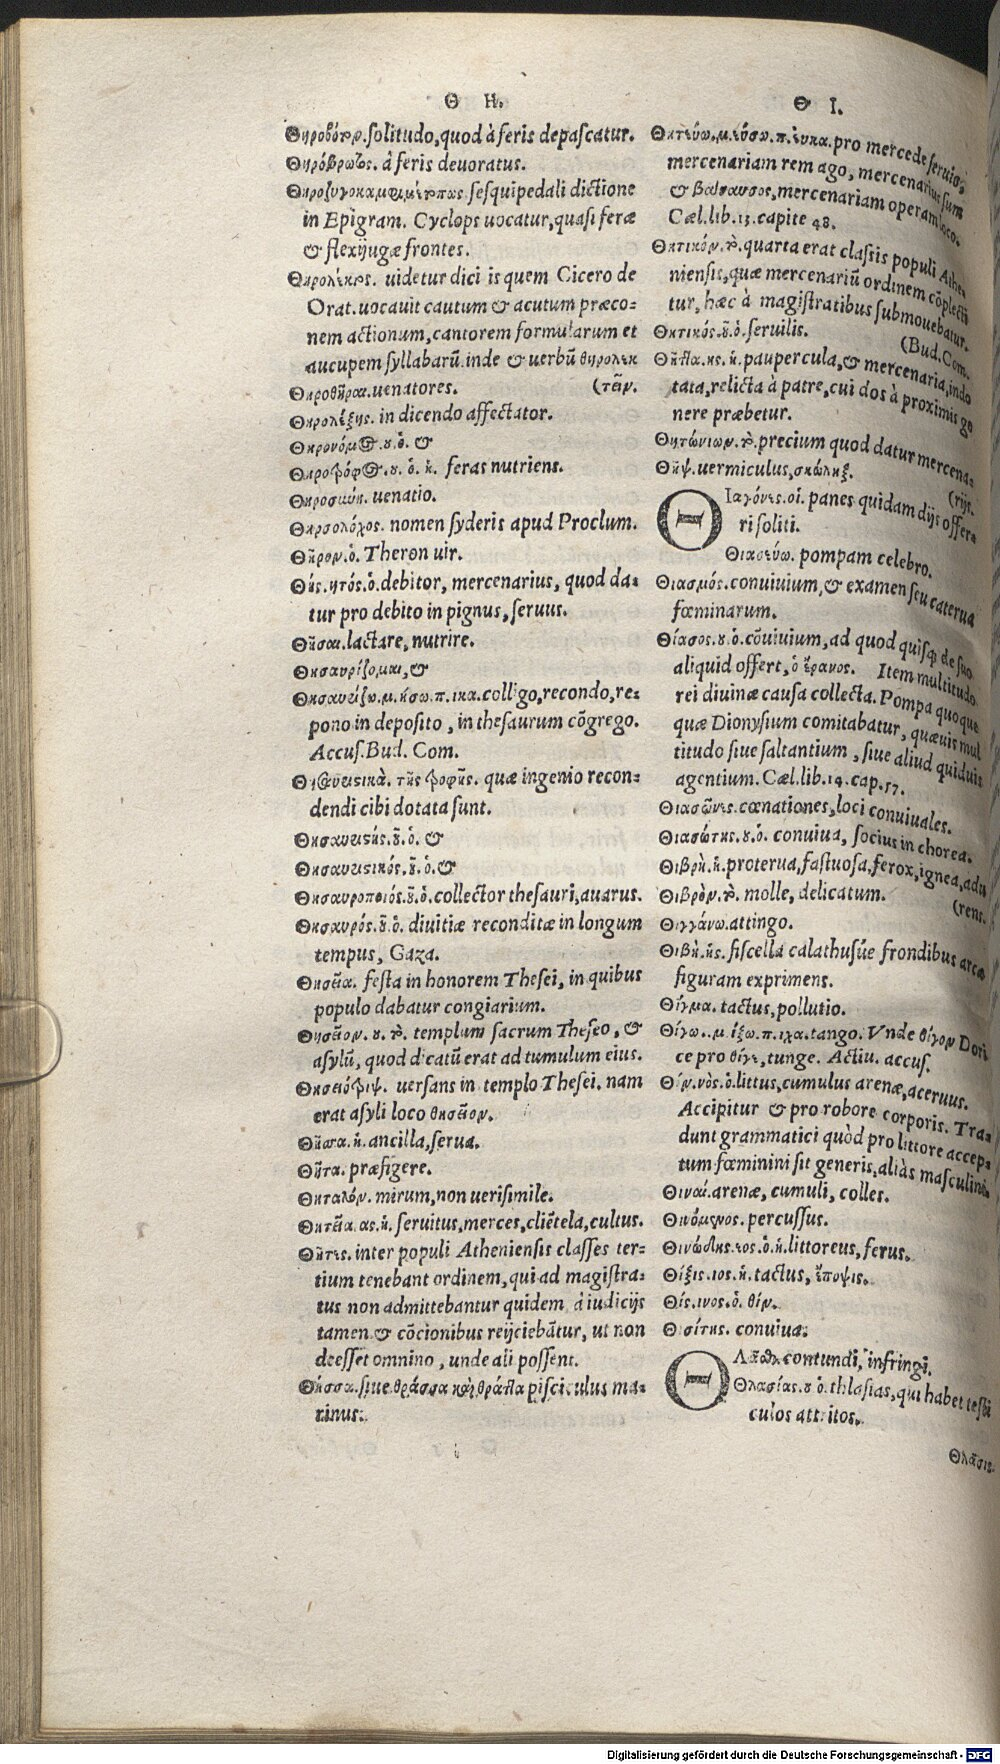 Θ Η.
Θηροβότον. solitudo, quod à feris depascatur.
Θηρόβρωτος. à feris deuoratus.
sesquipedali dictione
in Epigram. Cyclops uocatur, quasi feræ
& flexijugæ frontes.
uidetur dici is quem Cicero de
Orat. uocauit cautum & acutum præco-
nem actionum, cantorem formularum et
aucupem syllabarũ. inde & uerbũ θηρολεκ
Θηροθῆραι. uenatores. (τεῖν.
Θηρολέξης. in dicendo affectator.
Θηρονόμος. ου. ὁ. &
Θηροτρόφος. ου. ὁ. ἡ. feras nutriens.
Θηροσύνη. uenatio.
Θηρσολόχος. nomen syderis apud Proclum.
Θήρον. ὁ. Theron uir.
Θής. ητός. ὁ. debitor, mercenarius, quod da-
tur pro debito in pignus, seruus.
Θῆσαι. lactare, nutrire.
Θησαυρίζομαι, &
Θησαυρίζω. μ. ίσω. π. ικα. colligo, recondo, re-
pono in deposito, in thesaurum cõgrego.
Accus. Bud. Com.
Θησαυριστικὰ. τῆς τροφῆς. quæ ingenio recon-
dendi cibi dotata sunt.
Θησαυριστής. οῦ. ὁ. &
Θησαυριστικός. οῦ. ὁ. &
Θησαυροποιός. οῦ. ὁ. collector thesauri, auarus.
Θησαυρός. οῦ. ὁ. diuitiæ reconditæ in longum
tempus, Gaza.
Θησεῖα. festa in honorem Thesei, in quibus
populo dabatur congiarium.
Θησεῖον. ου. τὸ. templum sacrum Theseo, &
asylũ, quod dicatũ erat ad tumulum eius.
Θησειότριψ. uersans in templo Thesei. nam
erat asyli loco θησεῖον.
Θῆσσα. ἡ. ancilla, serua.
Θῆτα. præfigere.
Θηταλόν. mirum, non uerisimile.
Θητεία. ας. ἡ. seruitus, merces, cliẽtela, cultus.
Θῆτες. inter populi Atheniensis classes ter-
tium tenebant ordinem, qui ad magistra-
tus non admittebantur quidem, à iudicijs
tamen & cõcionibus reijciebãtur, ut non
deesset omnino, unde ali possent.
Θήσσα. siue θράσσα καὶ θράττα pisciculus ma-
rinus.
Θ Ι.
Θητεύω. μ. εύσω. π. ευκα. pro mercede seruio,
mercenariam rem ago, mercenarius sum
& βαναυσος, mercenariam operam loco.
Cæl. lib. 13. capite 48.
Θητικόν. τὸ. quarta erat classis populi Athe
niensis, quæ mercenariũ ordinem cõplecti
tur, hæc à magistratibus submouebatur.
Θητικός. οῦ. ὁ. seruilis. (Bud. Com.
Θῆττα. ης. ἡ. paupercula, & mercenaria, indo
tata, relicta à patre, cui dos à proximis ge
nere præbetur.
Θητώνιον. τὸ. precium quod datur mercena-
Θήψ. uermiculus, σκώληξ. (rijs.
Θιαγόνες. οἱ. panes quidam dijs offer-
ri soliti.
Θιασεύω. pompam celebro.
Θιασμός. conuiuium, & examen seu caterua
fœminarum.
Θίασος. ου. ὁ. cõuiuium, ad quod quisq; de suo
aliquid offert, ὁ ἔρανος. Item multitudo
rei diuinæ causa collecta. Pompa quoque
quæ Dionysium comitabatur, quæuis mul
titudo siue saltantium, siue aliud quiduis
agentium. Cæl. lib. 14. cap. 57.
Θιασῶνες. cœnationes, loci conuiuales.
Θιασώτης. ου. ὁ. conuiua, socius in chorea.
Θιβρὴ. ἡ. proterua, fastuosa, ferox, ignea, adu
Θιβρὸν. τὸ. molle, delicatum. (rens.
Θιγγάνω. attingo.
Θιβὴ. ῆς. fiscella calathusúe frondibus arcæ
figuram exprimens.
Θίγμα. tactus, pollutio.
Θίγω. μ. ίξω. π. ιχα. tango. Vnde θίγον Dori
ce pro θίγε, tunge. Actiu. accus.
Θίν. νὸς. ὁ. littus, cumulus arenæ, aceruus.
Accipitur & pro robore corporis. Tra-
dunt grammatici quòd pro littore accep-
tum fœminini sit generis, aliàs masculini.
Θιναί. arenæ, cumuli, colles.
Θινόμενος. percussus.
Θινώδης. εος. ὁ. ἡ. littoreus, ferus.
Θίξις. ιος. ἡ. tactus, ἔποψις.
Θίς. ινος. ὁ. θίν.
Θισίτης. conuiua.
contundi, infringi.
Θλασίας. ου ὁ. thlasias, qui habet testi
culos attritos.
Θλᾶσις.
Digitalisierung gefördert durch die Deutsche Forschungsgemeinschaft - DFG